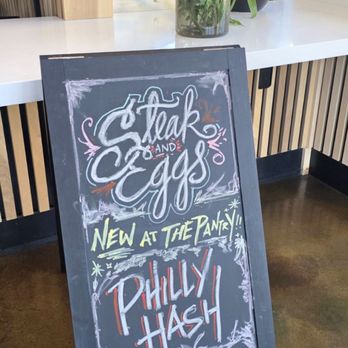 Steak
AND
Eggs
NEW AT THE PANTRY!!
PHILLY
HASH